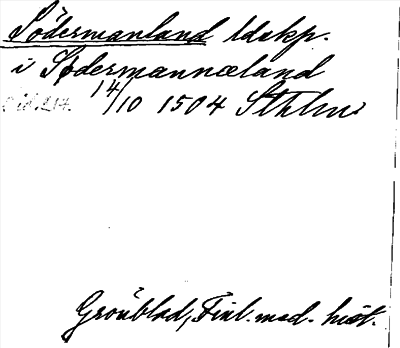 Södermanland ldskp.
i Södermannæland
14/10 1504 Sthlm
Grönblad, Finl. med. hist.